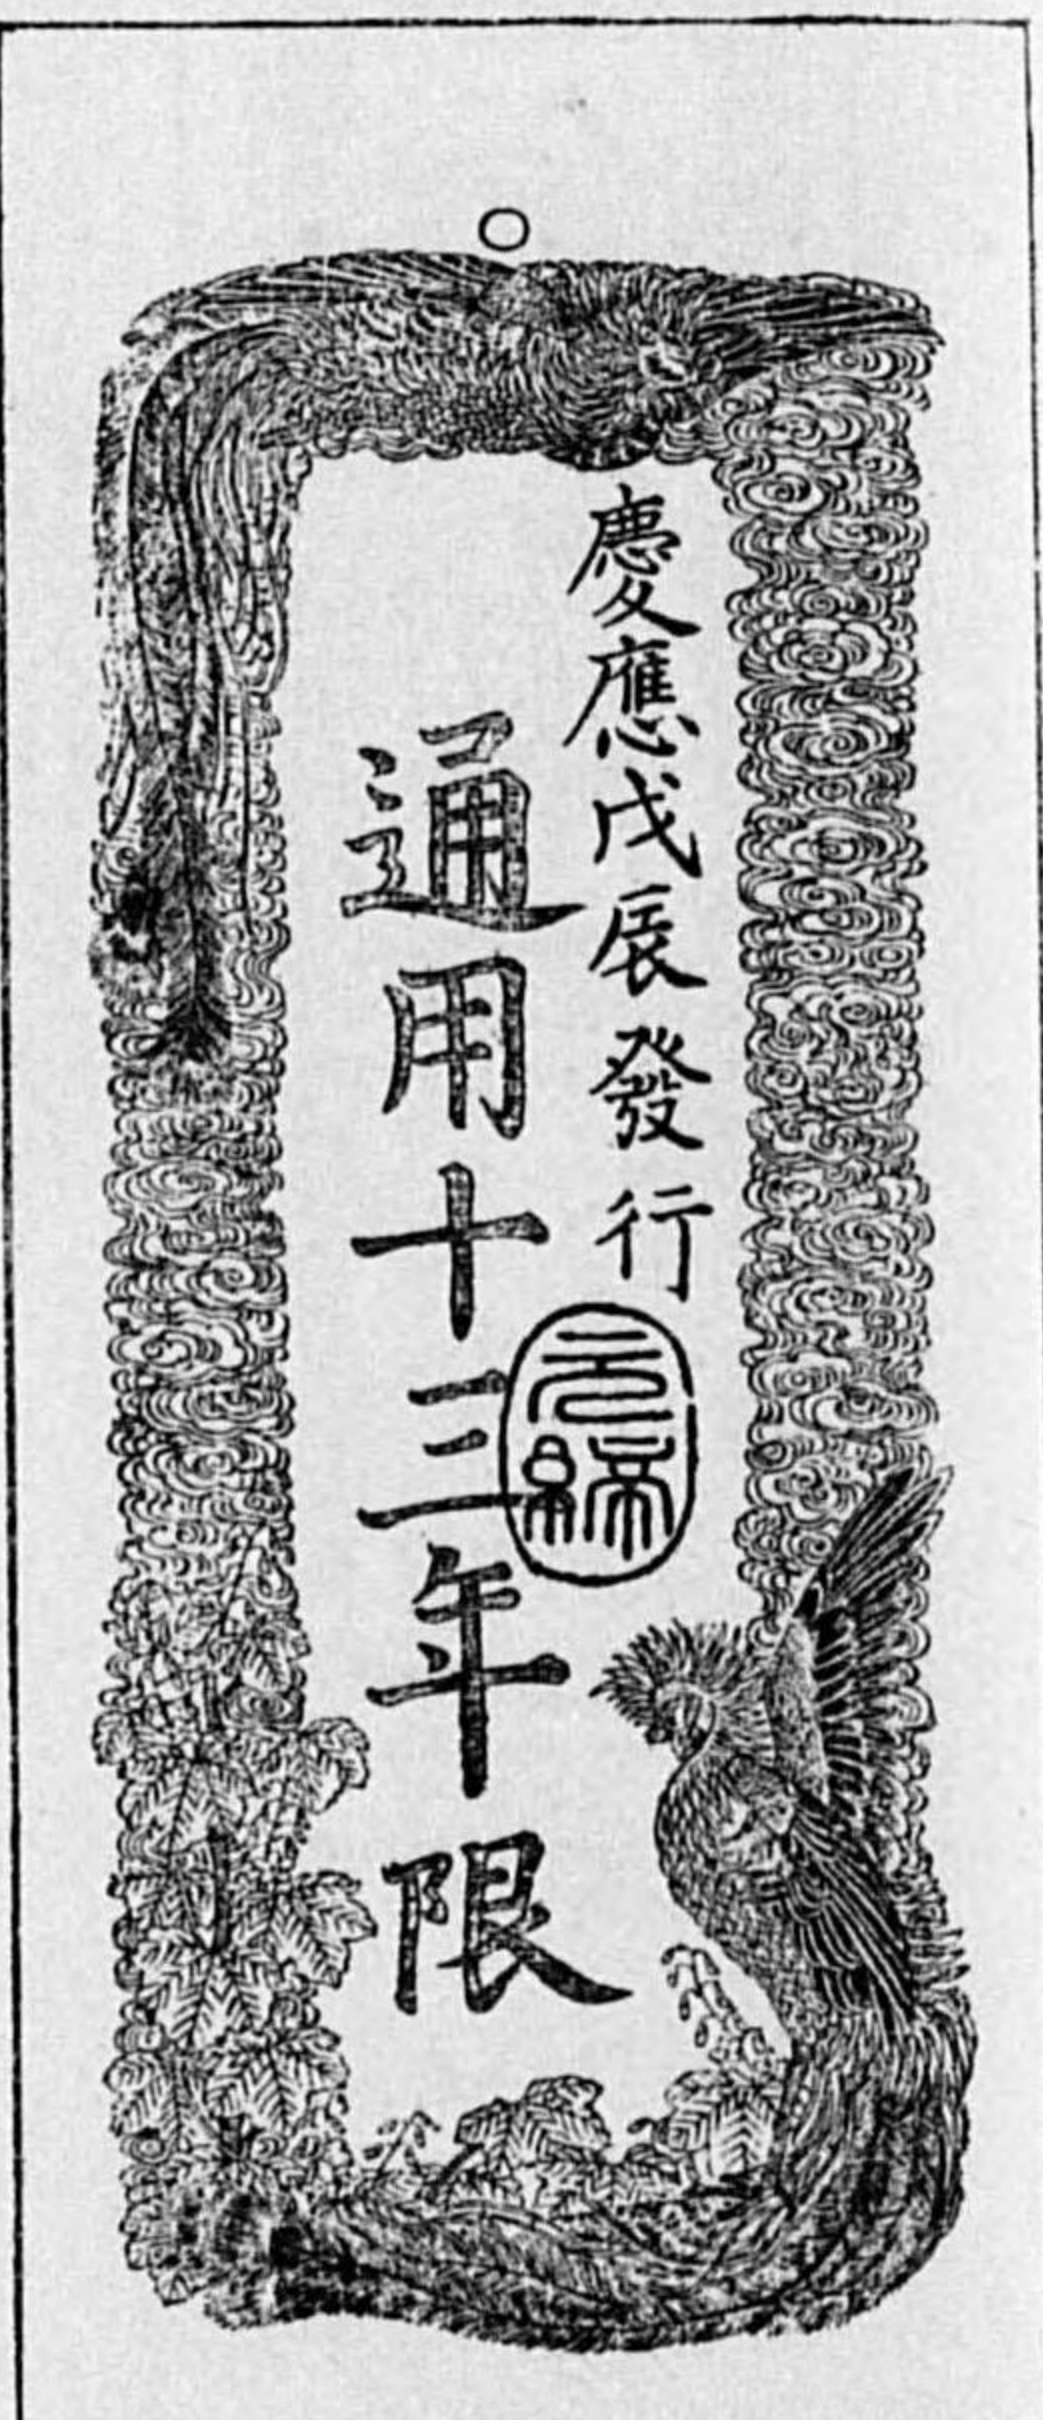 慶應戊辰發行
通用十三年限
元締